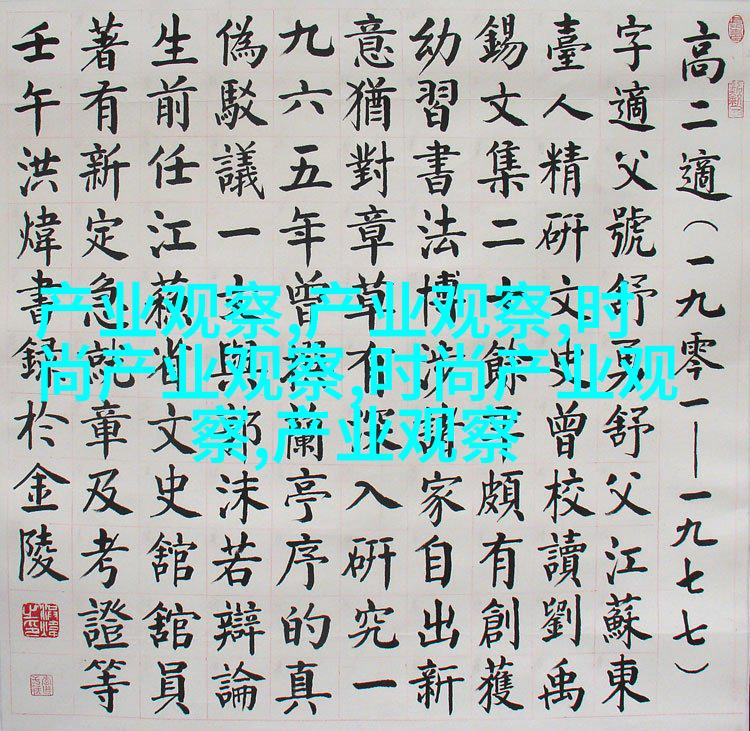 高二適（一九零一——一九七七）
字適父號舒父江蘇東
臺人精研文史曾校讀劉禹
錫文集二十餘年頗有創獲
幼習書法博涉諸家自出新
意猶對章草有深入研究一
九六五年曾撰蘭亭序的真
偽駁議一文與郭沫若辯論
生前任江蘇省文史舘舘員
著有新定急就章及考證等
壬午洪煒書錄於金陵
产业观察,产业观察,时
尚产业观察,时尚产业观
察,产业观察